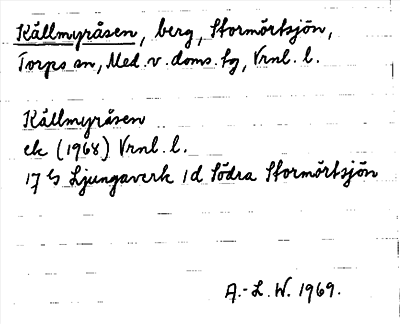 Källmyråsen, berg, Stormörtsjön,
Torps sn, Med. v. doms. fg, Vrnl. l.
Källmyråsen
ek (1968) Vrnl. l.
17 G Ljungaverk 1d Södra Stormörtsjön
A.-L. W. 1969.